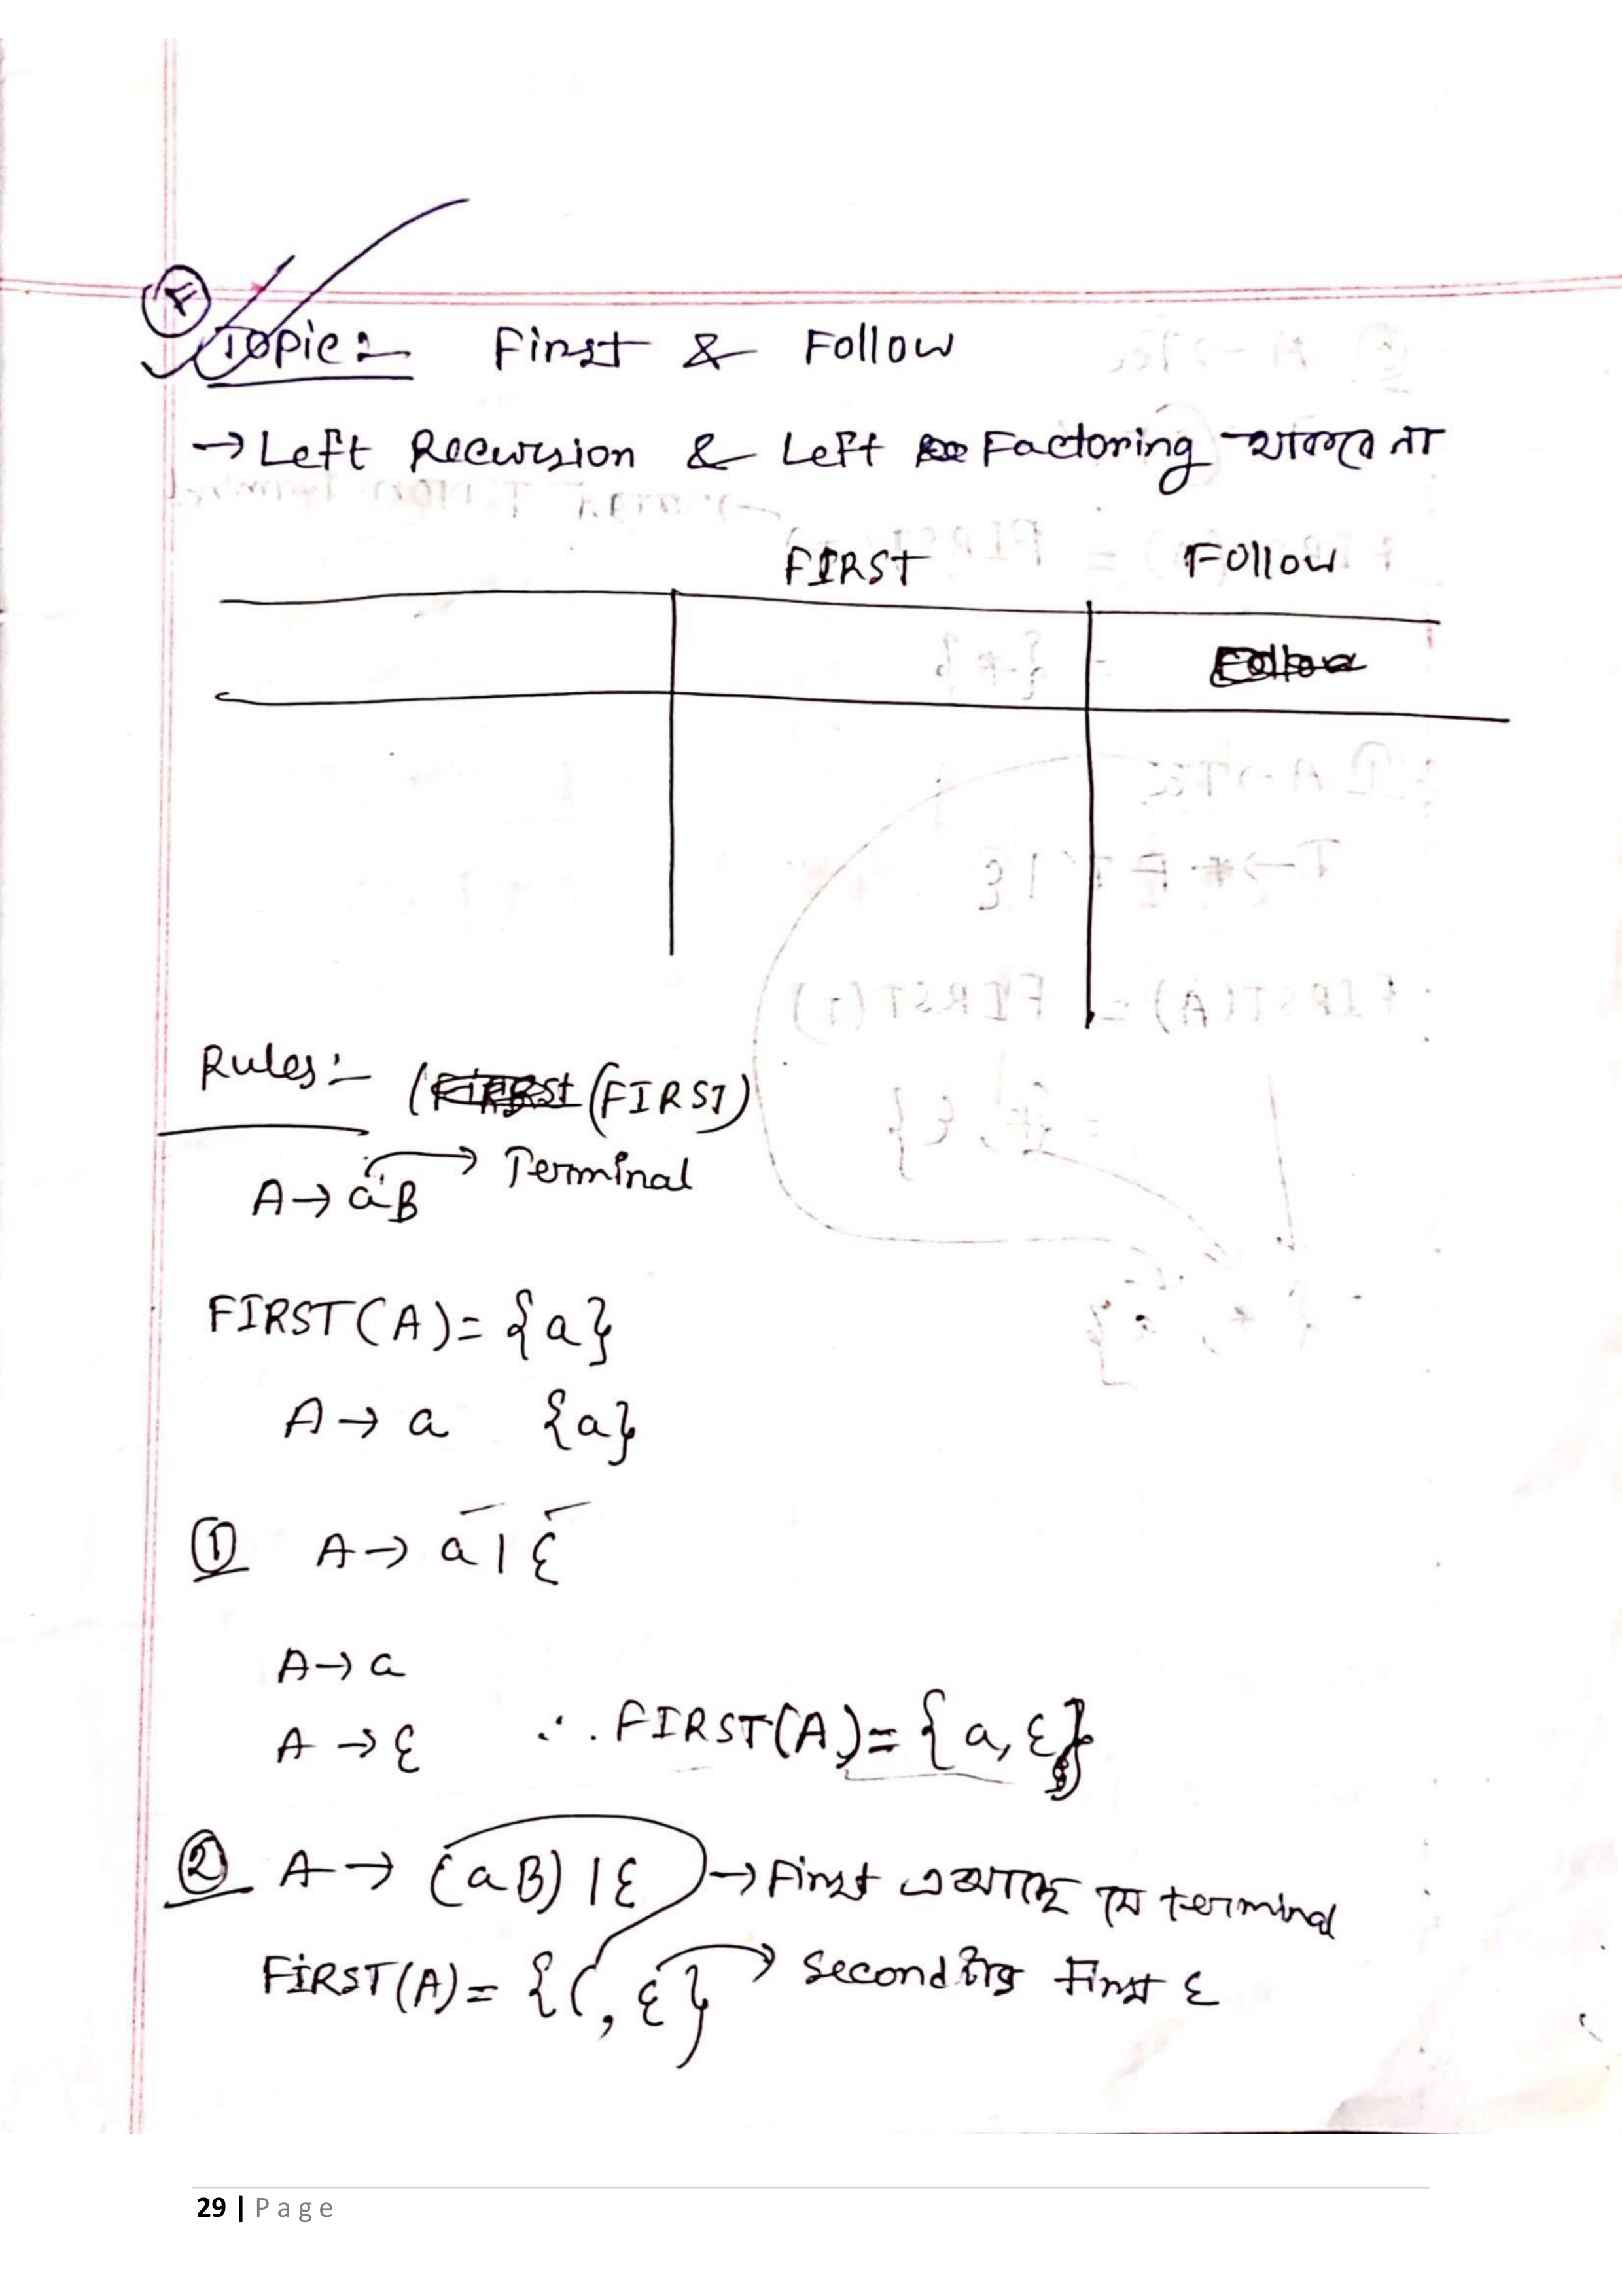 Topic:- First & Follow
→ Left Recursion & Left Factoring থাকবে না
FIRST Follow
Rules:- (FIRST)
A → aB → Terminal
FIRST(A) = {a}
A → a {a}
① A → a | ε
A → a
A → ε ∴ FIRST(A) = {a, ε}
② A → (aB) | ε → First এ আছে যে terminal
FIRST(A) = {(, ε} → Second First ε
29 | Page